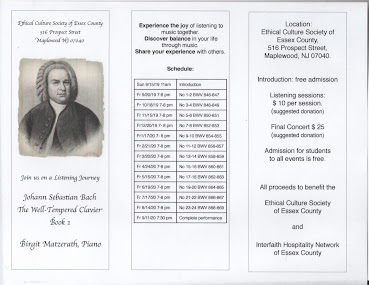 Ethical Culture Society of Essex County
516 Prospect Street
Maplewood NJ 07040
Join us on a Listening Journey
Johann Sebastian Bach
The Well-Tempered Clavier
Book 1
Birgit Matzerath, Piano
Experience the joy of listening to
music together.
Discover balance in your life
through music.
Share your experience with others.
Schedule:
Sun 9/15/19 11am Introduction
Fr 9/20/19 7-8 pm No 1-2 BWV 846-847
Fr 10/18/19 7-8 pm No 3-4 BWV 848-849
Fr 11/15/19 7-8 pm No 5-6 BWV 850-851
Fr 12/20/19 7-8 pm No 7-8 BWV 852-853
Fr 1/17/20 7-8 pm No 9-10 BWV 854-855
Fr 2/21/20 7-8 pm No 11-12 BWV 856-857
Fr 3/20/20 7-8 pm No 13-14 BWV 858-859
Fr 4/24/20 7-8 pm No 15-16 BWV 860-861
Fr 5/15/20 7-8 pm No 17-18 BWV 862-863
Fr 6/19/20 7-8 pm No 19-20 BWV 864-865
Fr 7/17/20 7-8 pm No 21-22 BWV 866-867
Fr 8/14/20 7-8 pm No 23-24 BWV 868-869
Fr 9/11/20 7:30 pm Complete performance
Location:
Ethical Culture Society of
Essex County,
516 Prospect Street,
Maplewood, NJ 07040.
Introduction: free admission
Listening sessions:
$ 10 per session.
(suggested donation)
Final Concert $ 25
(suggested donation)
Admission for students
to all events is free.
All proceeds to benefit the
Ethical Culture Society
of Essex County
and
Interfaith Hospitality Network
of Essex County